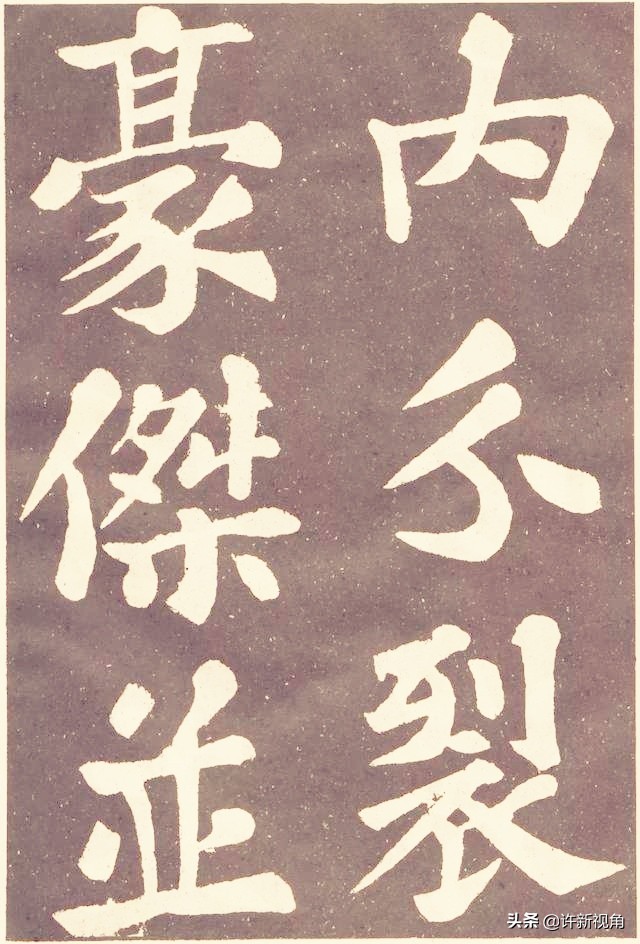 内分裂
豪傑並
头条 @许新视角